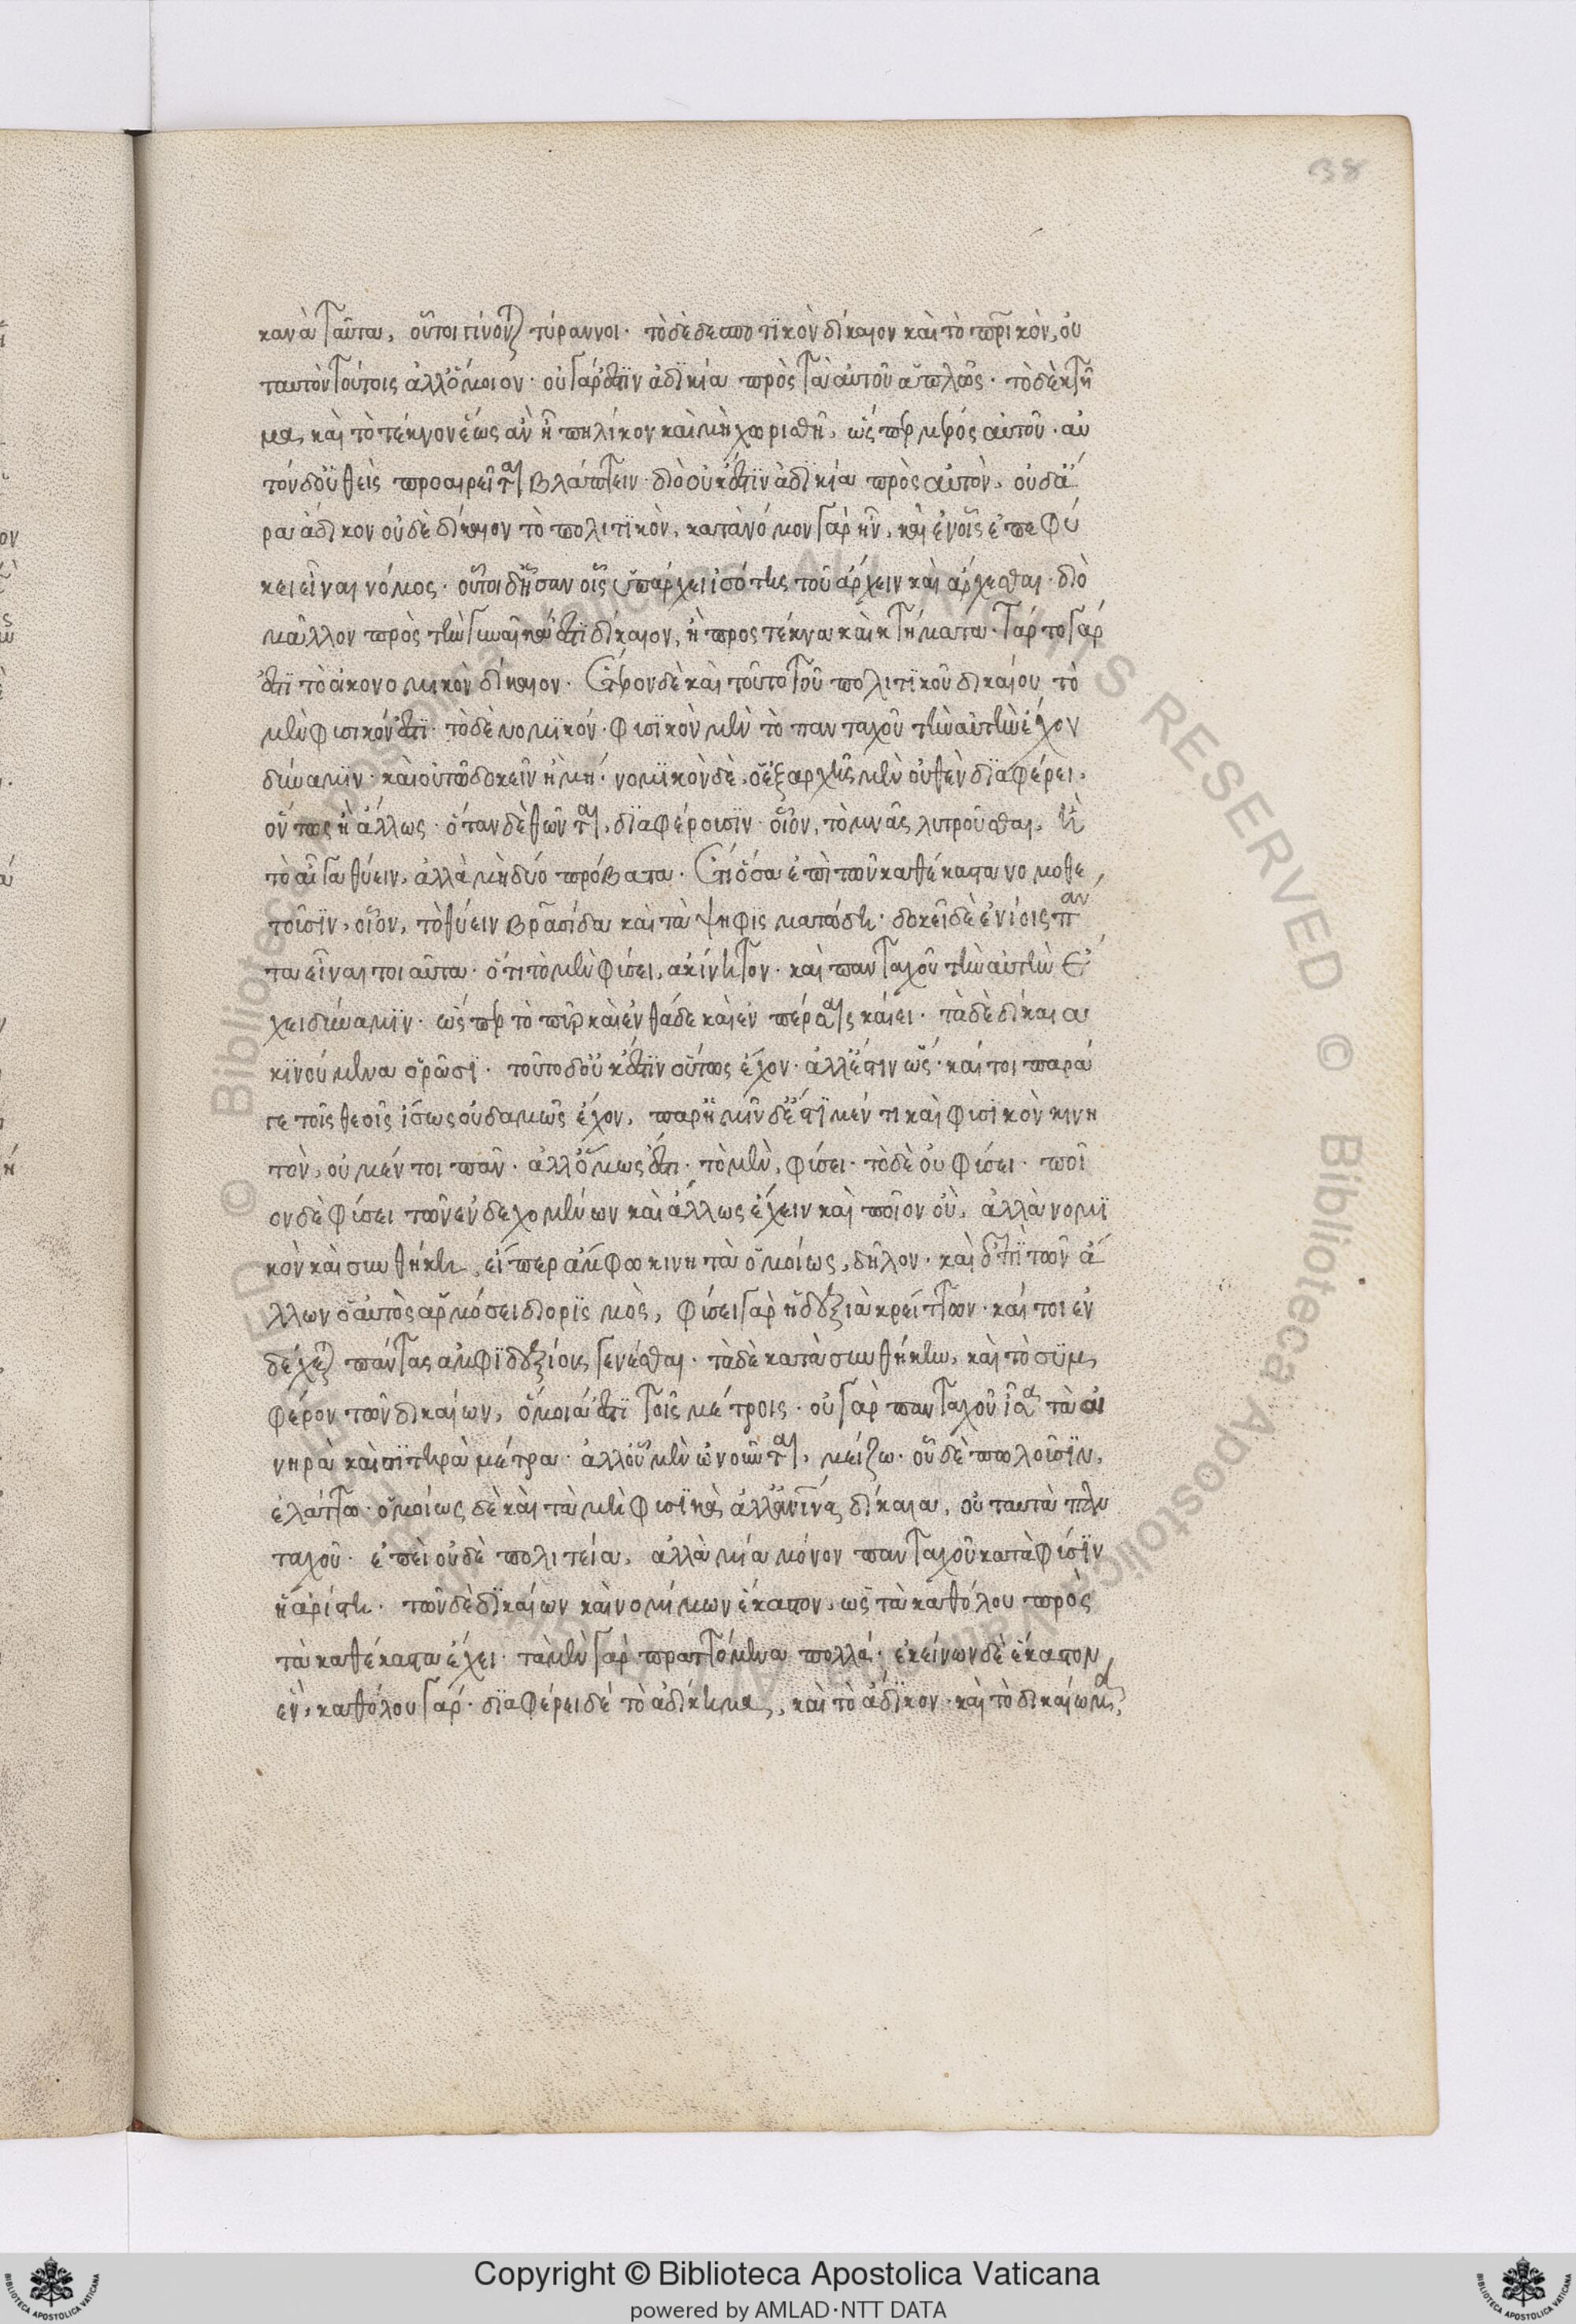 38
κανὰ ταῦτα, οὗτοι γίνονται τύραννοι· τὸ δὲ δεσποτϊκὸν δίκαιον καὶ τὸ πρικὸν, οὐ
ταυτὸν τούτοις ἀλλ' ὅμοιον· οὐ γάρ ἐστϊν ἀδικία πρὸς τὰ αὑτοῦ ἁπλῶς· τὸ δὲ κτῆ
μα, καὶ τὸ τέκνον ἕως ἂν ᾖ πηλίκον καὶ μὴ χωρισθῆ, ὥσπερ μέρος αὑτοῦ· αὑ
τόν δ' οὐθεὶς προαιρεῖται βλάπτειν· διὸ οὐκ ἔστϊν ἀδϊκία πρὸς αὑτὸν, οὐδ' ἄ
ρα ἄδικον οὐδὲ δίκαιον τὸ πολιτϊκὸν, κατὰ νόμον γὰρ ἦν, καὶ ἐν οἷς ἐπεφύ
κει εἶναι νόμος· οὗτοι δ' ἦσαν οἷς ὑπάρχει ἰσότης τοῦ ἄρχειν καὶ ἄρχεσθαι· διὸ
μᾶλλον πρὸς τὴν γυναῖκά ἐστϊ δίκαιον, ἢ προς τέκνα καὶ κτήματα· γάρ το γάρ
ἐστϊ τὸ οἰκονομικὸν δίκαιον· ἕτερον δὲ καὶ τοῦτο τοῦ πολιτϊκοῦ δικαίου τὸ
μὲν φυσικόν ἐστϊ· τὸ δὲ νομϊκόν· φυσϊκὸν μὲν τὸ πανταχοῦ τὴν αὐτὴν ἔχον
δύναμϊν· καὶ οὐ τῶ δοκεῖν ἢ μή· νομϊκὸν δὲ, ὃ ἐξαρχῆς μὲν οὐθὲν δϊαφέρει,
οὕτως ἢ ἄλλως· ὅταν δὲ θῶνται, δϊαφέρουσϊν· οἷον, τὸ μνᾶς λυτροῦσθαι, ἢ
τὸ αἶγα θύειν, ἀλλὰ μὴ δύο πρόβατα· ἔτι ὅσα ἐπὶ τῶν καθέκαστα νομοθε
τοῦσϊν, οἷον, τὸ θύειν βρασίδα καὶ τὰ ψηφϊσματώδη· δοκεῖ δὲ ἐνίοις πάν
τα εἶναι τοιαῦτα· ὅτι τὸ μὲν φύσει, ἀκίνητον· καὶ πανταχοῦ τὴν αὐτὴν ἔ
χει δύναμϊν· ὥσπερ τὸ πῦρ καὶ ἐνθάδε καὶ ἐν πέρσαις καίει· τὰ δὲ δίκαια
κϊνούμενα ὁρῶσϊ· τοῦτο δ' οὐκ ἔστϊν οὕτως ἔχον· ἀλλ' ἔστιν ὥς· καίτοι παρά
γε τοῖς θεοῖς ἴσως οὐδαμῶς ἔχον, παρ' ἡμῖν δ' ἔστϊ μέν τι καὶ φυσϊκὸν κινη
τὸν, οὐ μέν τοι πᾶν· ἀλλ' ὅμως ἐστι· τὸ μὲν, φύσει· τὸ δὲ οὐ φύσει· ποῖ
ον δὲ φύσει τῶν ἐνδεχομένων καὶ ἄλλως ἔχειν καὶ ποῖον οὒ, ἀλλὰ νομϊ
κὸν καὶ συνθήκη, εἴπερ ἄμφω κινητὰ ὁμοίως, δῆλον· καὶ ἐπὶ τῶν ἄ
λλων ὁ αὐτὸς ἁρμόσει διορϊσμὸς, φύσει γὰρ ἡ δεξιὰ κρείττων· καίτοι ἐν
δέχεται πάντας ἀμφϊδεξίους γενέσθαι· τὰ δὲ κατὰ συνθήκην, καὶ τὸ συμ
φέρον τῶν δικαίων, ὅμοιά ἐστϊ τοῖς μέτροις· οὐ γὰρ πανταχοῦ ἴσα τὰ οἰ
νηρὰ καὶ σϊτηρὰ μέτρα· ἀλλ' οὗ μὲν ὠνοῦνται, μείζω· οὗ δὲ πωλοῦσϊν,
ἐλάττω· ὁμοίως δὲ καὶ τὰ μὴ φυσϊκὰ ἀλλ' ἀνϊνα δίκαια, οὐ ταυτὰ παν
ταχοῦ· ἐπεὶ οὐδὲ πολιτεία, ἀλλὰ μία μόνον πανταχοῦ κατὰ φύσϊν
ἡ ἀρίστη· τῶν δὲ δϊκαίων καὶ νομίμων ἕκαστον, ὡς τὰ καθόλου πρὸς
τὰ καθέκαστα ἔχει· τὰ μὲν γὰρ πραττόμενα πολλά· ἐκείνων δὲ ἕκαστον
ἓν, καθόλου γάρ· δϊαφέρει δέ τὸ ἀδίκημα, καὶ τὸ ἄδϊκον· καὶ τὸ δικαίωμα,
Copyright © Biblioteca Apostolica Vaticana
powered by AMLAD·NTT DATA